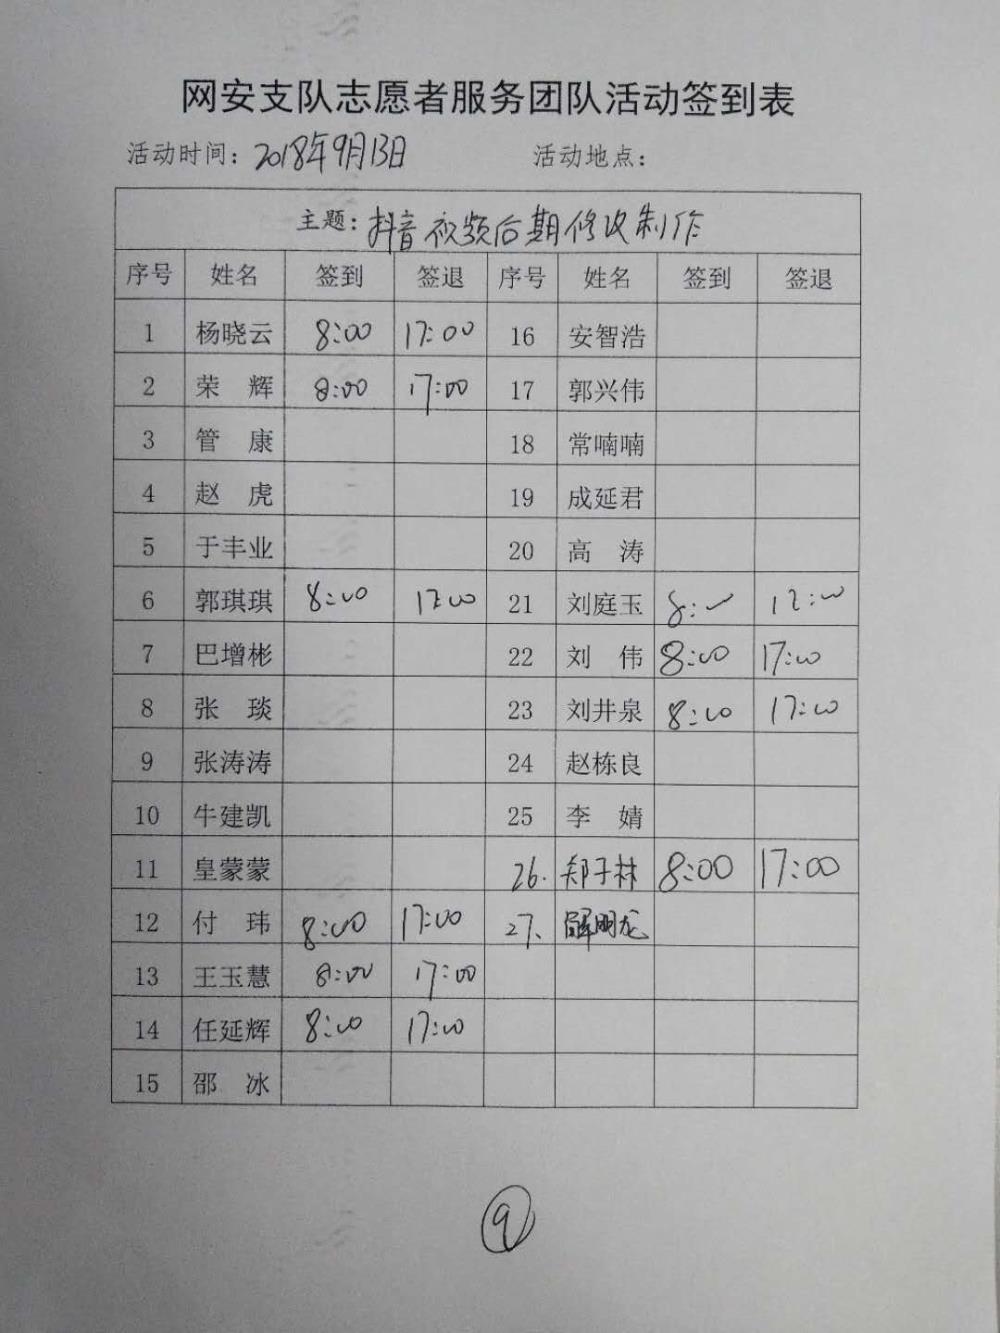 网安支队志愿者服务团队活动签到表
活动时间：2018年9月13日 活动地点：
主题：抖音视频后期修改制作
序号 姓名 签到 签退 序号 姓名 签到 签退
1 杨晓云 8:00 17:00 16 安智浩
2 荣 辉 8:00 17:00 17 郭兴伟
3 管 康 18 常喃喃
4 赵 虎 19 成延君
5 于丰业 20 高 涛
6 郭琪琪 8:00 17:00 21 刘庭玉 8:00 17:00
7 巴增彬 22 刘 伟 8:00 17:00
8 张 琰 23 刘井泉 8:00 17:00
9 张涛涛 24 赵栋良
10 牛建凯 25 李 婧
11 皇蒙蒙 26. 郑子林 8:00 17:00
12 付 玮 8:00 17:00 27、 解明龙
13 王玉慧 8:00 17:00
14 任延辉 8:00 17:00
15 邵 冰
9